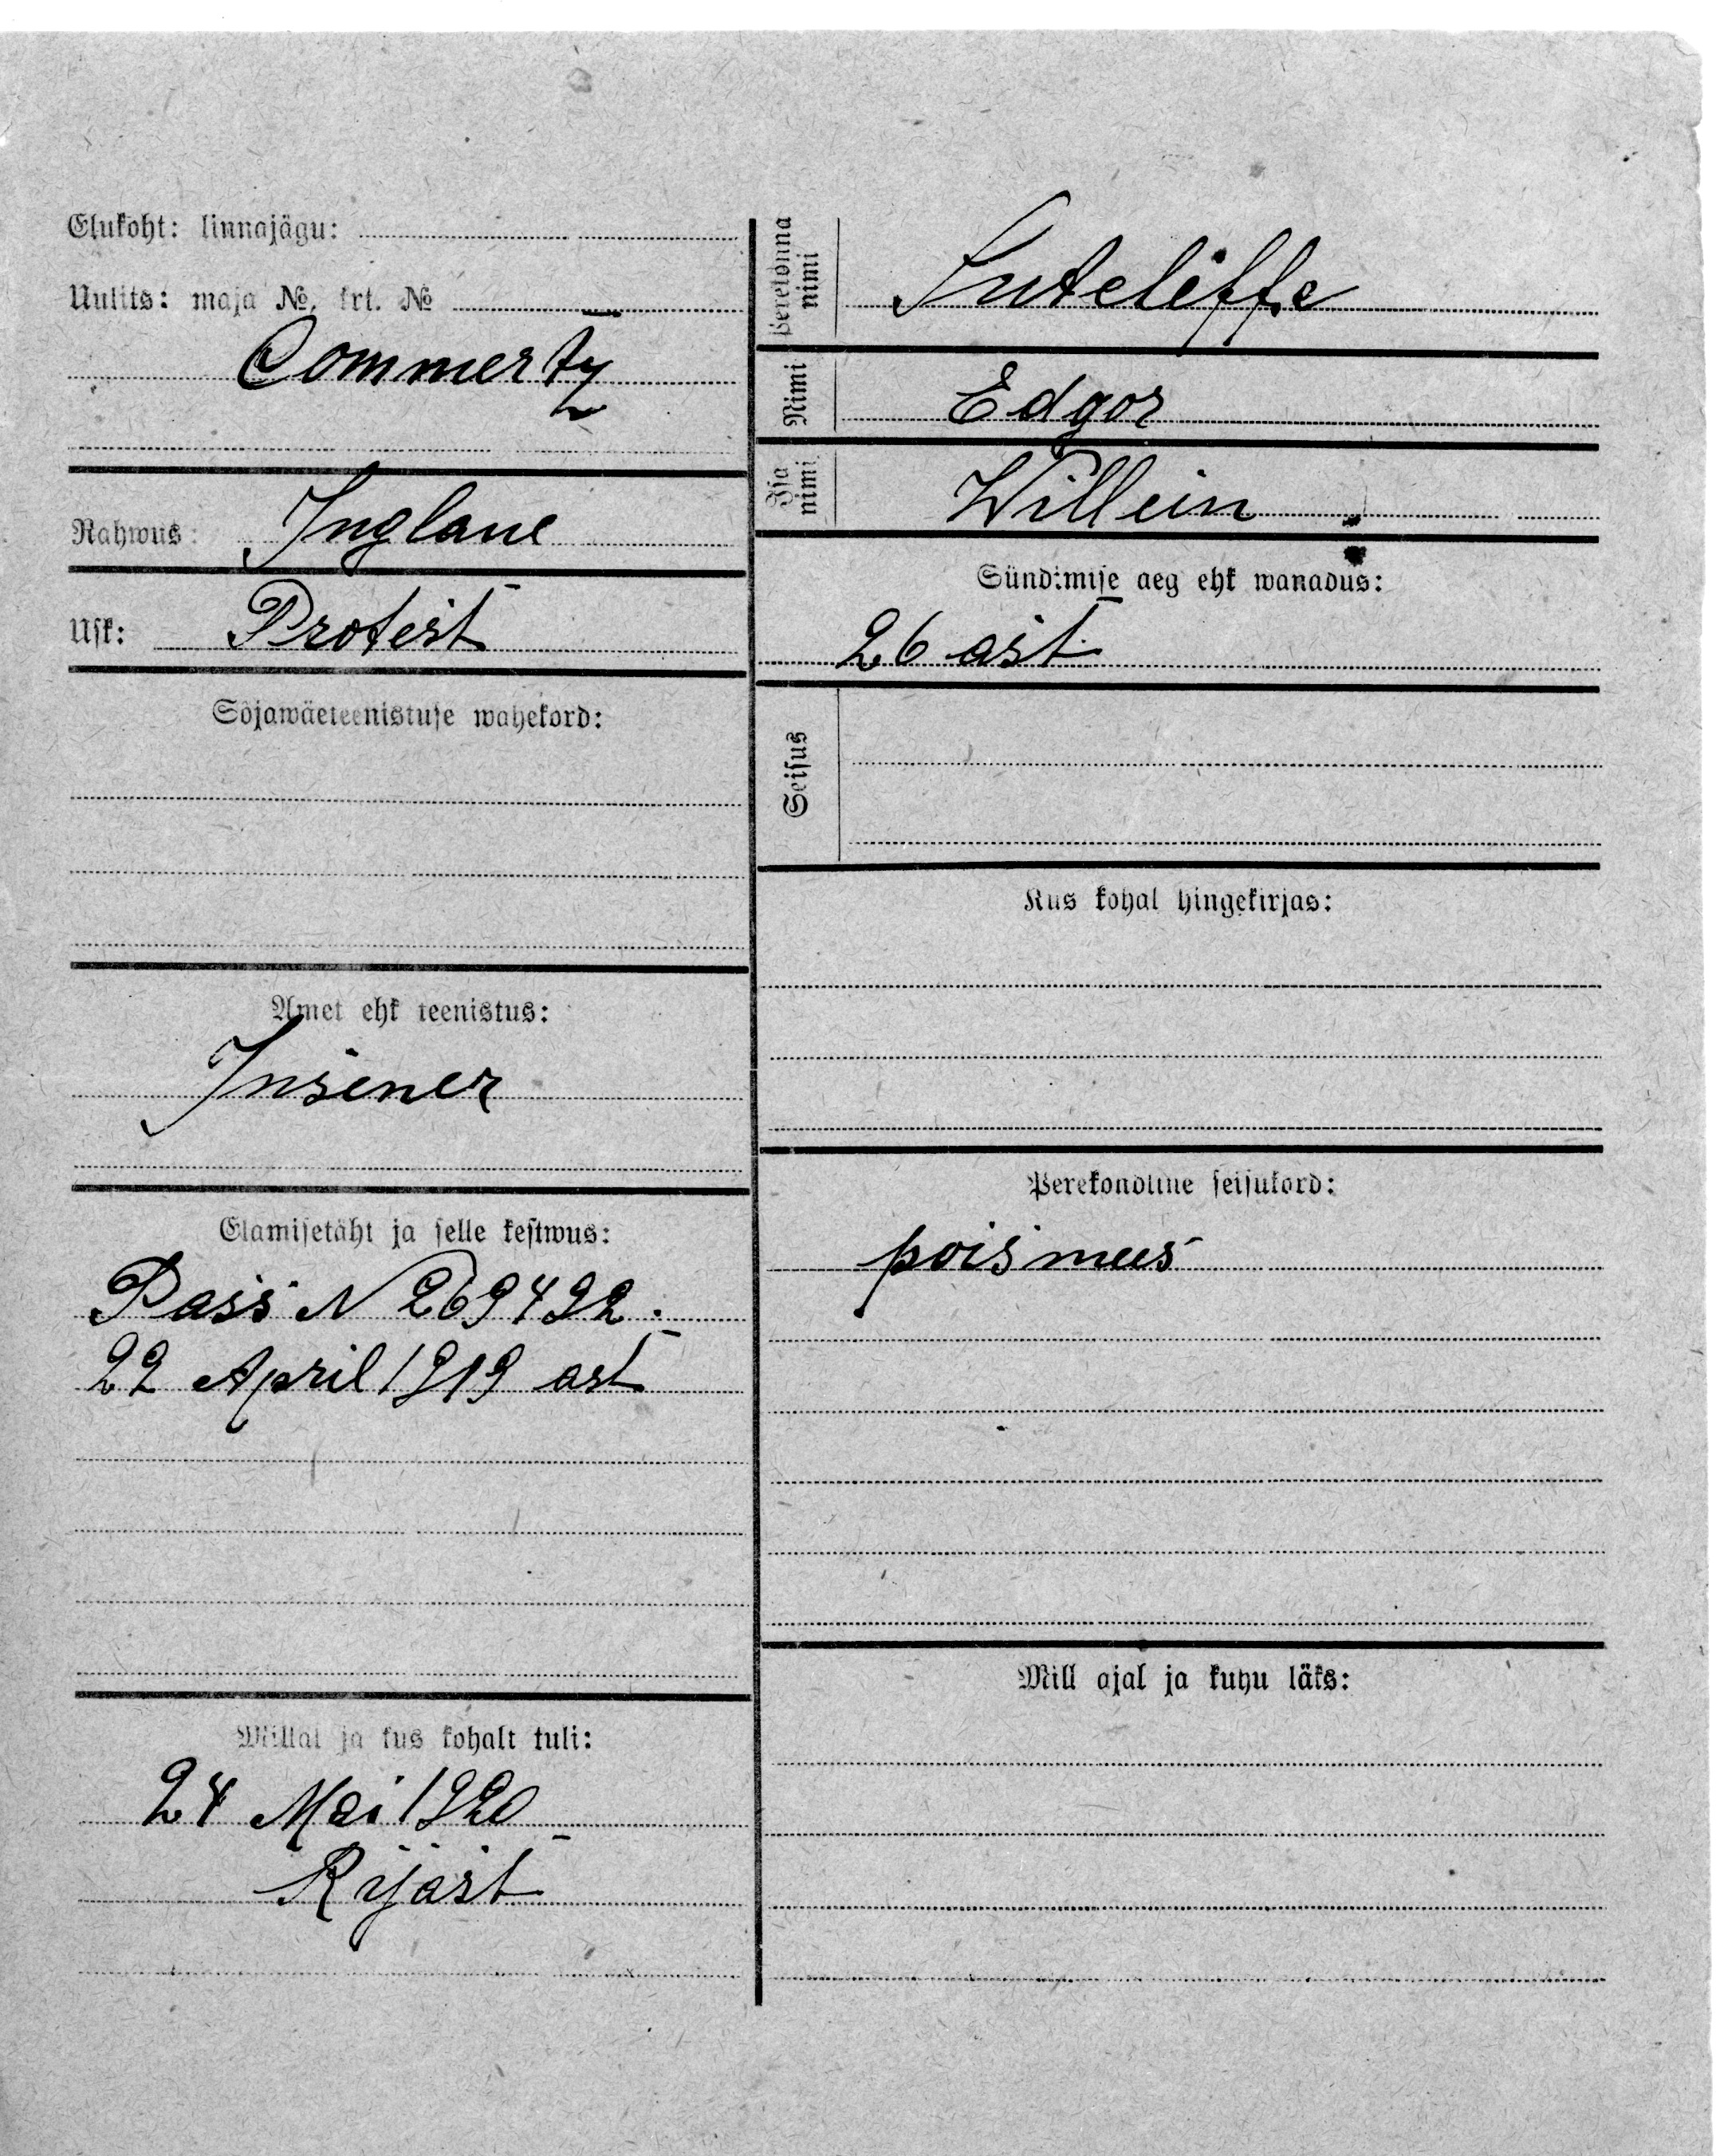 Elukoht: linnajägu:
Uulits: maja №, krt. №
Commertz
Rahwus: Inglane
Usk: Protest
Sõjawäeteenistuse wahekord:
Amet ehk teenistus:
Insener
Elamisetäht ja selle kestwus:
Pass N 269492.
22 April 1919 ast
Millal ja kus kohalt tuli:
24 Mai 1920
Rijast
Perekonna nimi Sutcliffe
Nimi Edgor
Isa nimi Willein
Sündimise aeg ehk wanadus:
26 ast
Seisus
Kus kohal hingekirjas:
Perekondline seisukord:
poismees
Mill ajal ja kuhu läks: